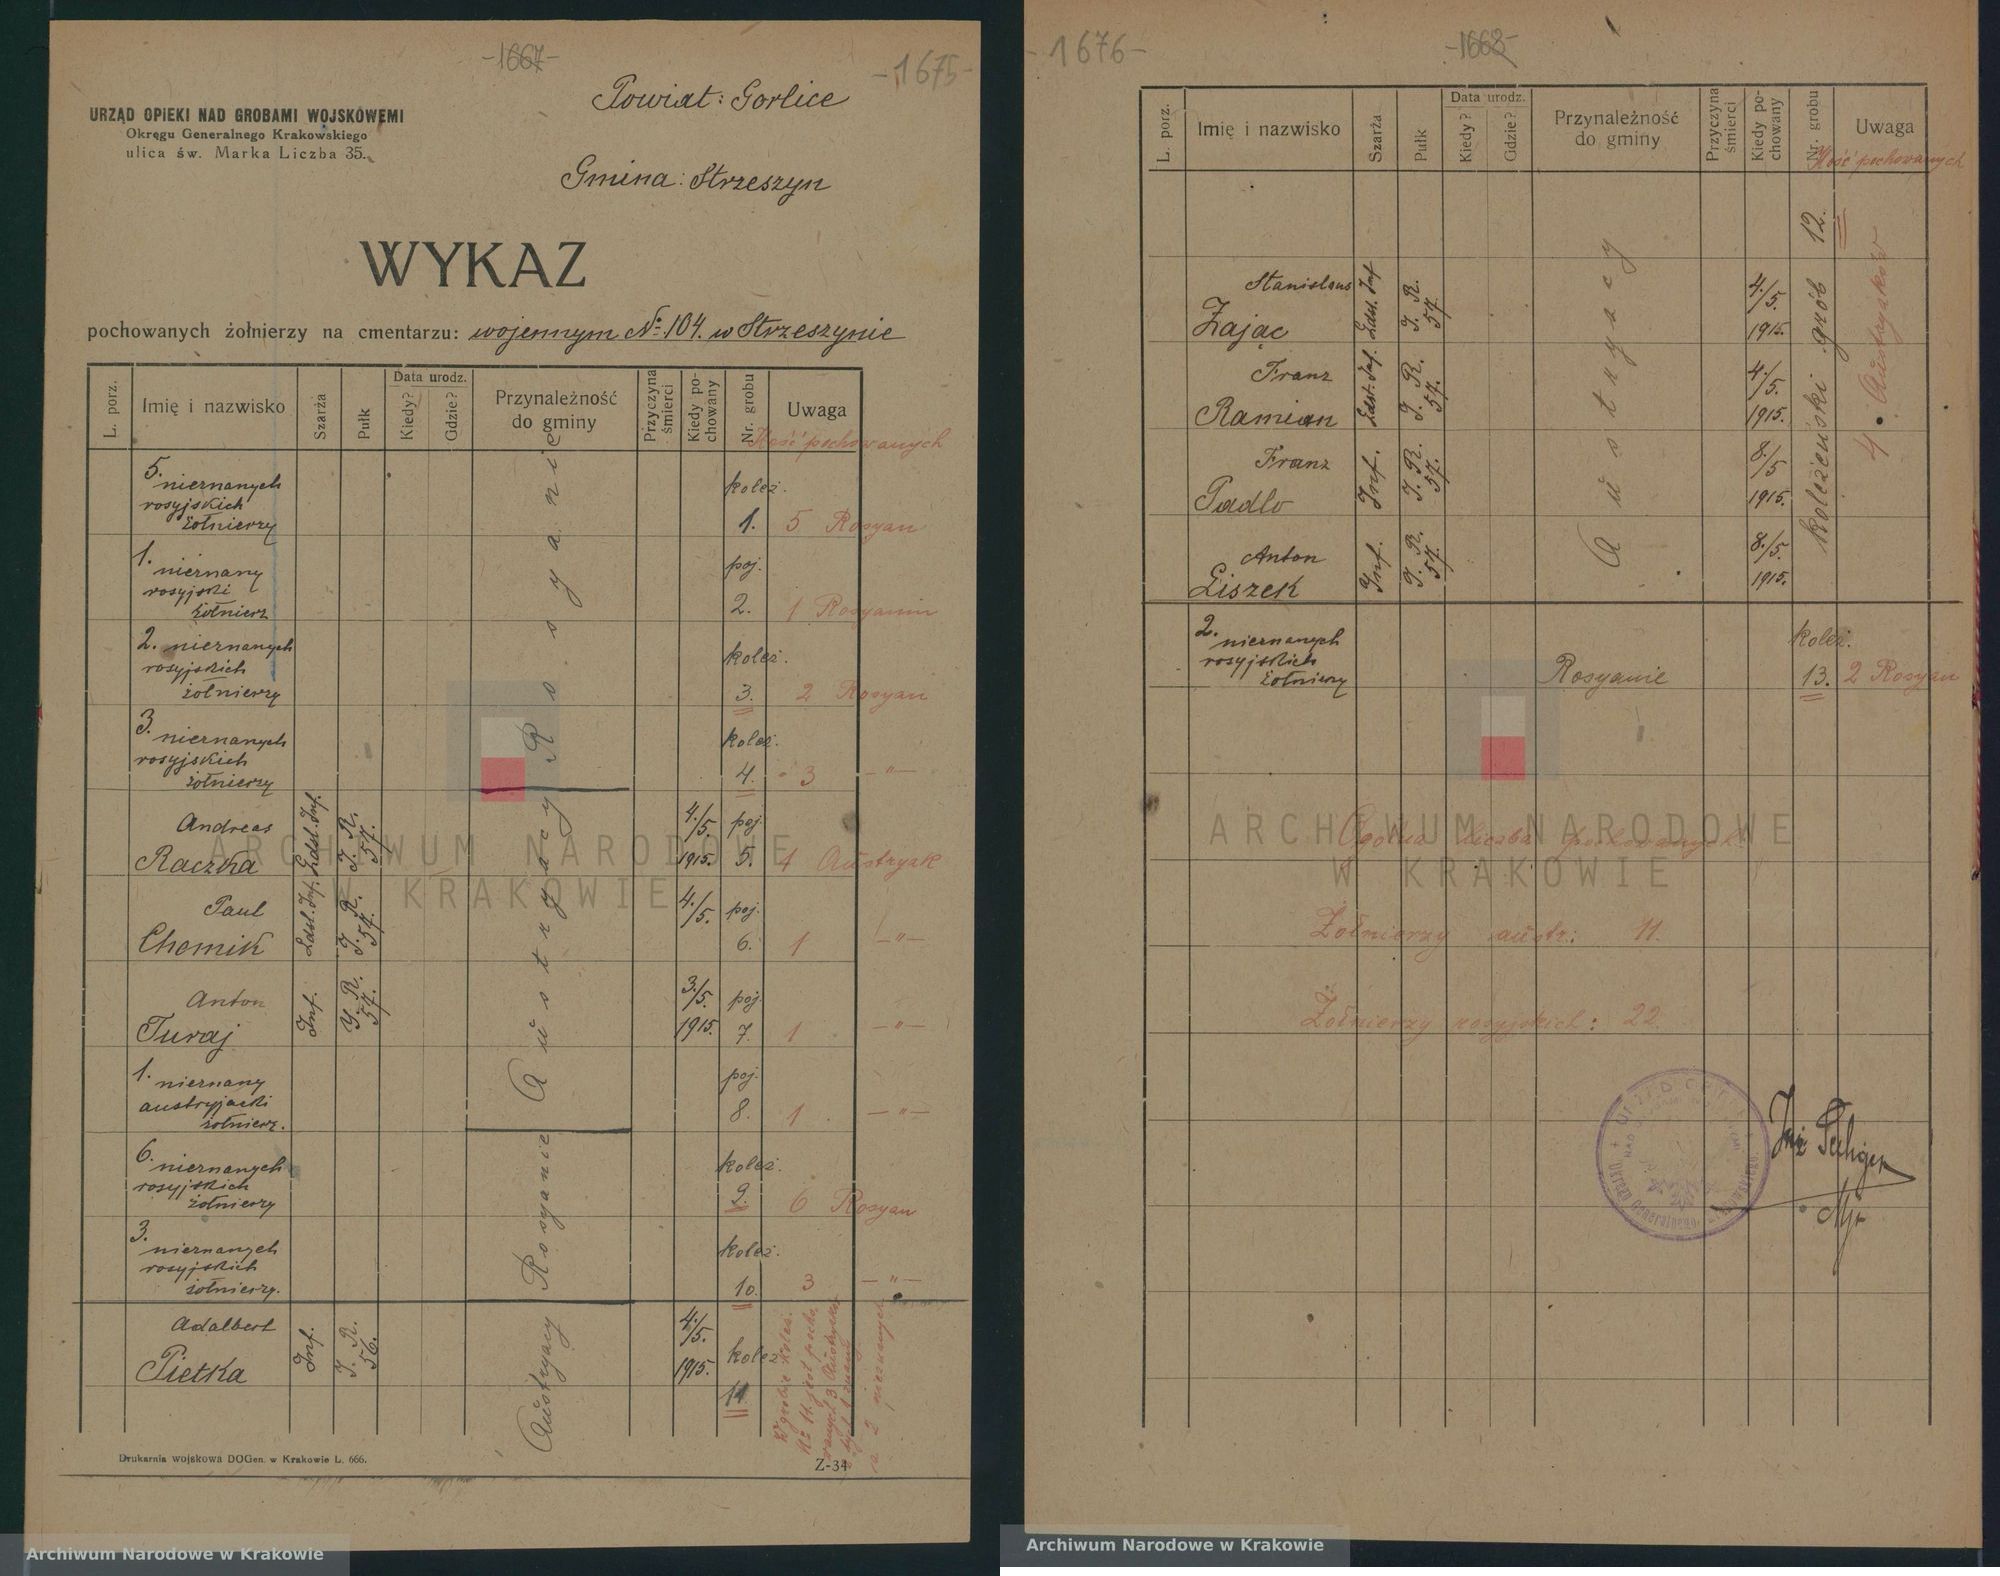 -1667-
-1675-
Powiat: Gorlice
URZĄD OPIEKI NAD GROBAMI WOJSKOWEMI
Okręgu Generalnego Krakowskiego
ulica św. Marka Liczba 35.
Gmina: Strzeszyn
WYKAZ
pochowanych żołnierzy na cmentarzu: wojennym №104. w Strzeszynie
L. porz.
Imię i nazwisko
Szarża
Pułk
Data urodz.
Kiedy?
Gdzie?
Przynależność do gminy
Przyczyna śmierci
Kiedy pochowany
Nr. grobu
Uwaga
Ilość pochowanych
5. nieznanych
rosyjskich
żołnierzy
koleż.
1. 5 Rosyan
1. nieznany
rosyjski
żołnierz
poj.
2. 1 Rosyanin
2. nieznanych
rosyjskich
żołnierzy
koleż.
3. 2 Rosyan
3. nieznanych
rosyjskich
żołnierzy
koleż.
4. 3 -"-
Rosyanie
Andreas
Raczka
Ldst. Inf.
I. R. 57.
4./5. 1915.
poj.
5. 1 Austryak
Paul
Chomik
Ldst. Inf.
I. R. 57.
4./5.
poj.
6. 1 -"-
Anton
Turaj
Inf.
I. R. 57.
3./5. 1915.
poj.
7. 1 -"-
1. nieznany
austryjacki
żołnierz.
poj.
8. 1 -"-
Austryacy
6. nieznanych
rosyjskich
żołnierzy
koleż.
9. 6 Rosyan
3. nieznanych
rosyjskich
żołnierzy.
koleż.
10. 3 -"-
Rosyanie
Adalbert
Pietka
Inf.
I. R. 56.
Austryacy
4./5. 1915.
koleż
11.
W grobie koleż.
№ 11. jest pocho
wanych 3 Austryaków
a 2 nieznanych
Drukarnia wojskowa DOGen. w Krakowie L. 666.
Z-34
ARCHIWUM NARODOWE
W KRAKOWIE
Archiwum Narodowe w Krakowie
-1676-
-1668-
L. porz.
Imię i nazwisko
Szarża
Pułk
Data urodz.
Kiedy?
Gdzie?
Przynależność do gminy
Przyczyna śmierci
Kiedy pochowany
Nr. grobu
Uwaga
Ilość pochowanych
Stanislaus
Zając
Ldst. Inf.
I. R. 57.
4./5. 1915.
Franz
Ramian
Ldst. Inf.
I. R. 57.
4./5. 1915.
Franz
Padlo
Inf.
I. R. 57.
8./5 1915.
Anton
Liszek
Inf.
I. R. 57.
8./5. 1915.
Austryacy
koleżeński grób 12.
4. Austryaków
2. nieznanych
rosyjskich
żołnierzy
Rosyanie
koleż.
13. 2 Rosyan
Ogólna liczba pochowanych:
Żołnierzy austr: 11.
Żołnierzy rosyjskich: 22
ARCHIWUM NARODOWE
W KRAKOWIE
Archiwum Narodowe w Krakowie